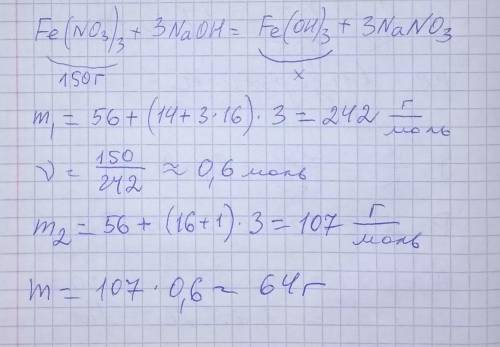 Fe(NO₃)₃ + 3NaOH = Fe(OH)₃ + 3NaNO₃
150г x
m₁ = 56 + (14 + 3·16)·3 = 242 г/моль
ν = 150/242 ≈ 0,6 моль
m₂ = 56 + (16 + 1)·3 = 107 г/моль
m = 107 · 0,6 ~ 64г